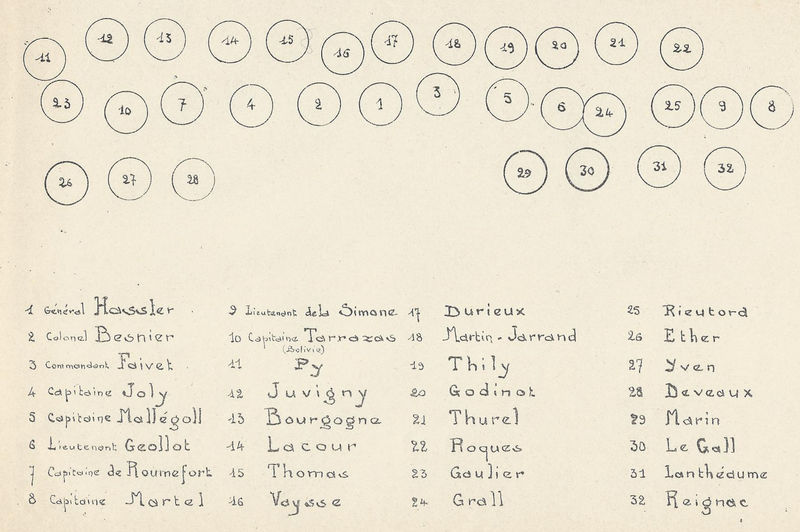 11 12 13 14 15 16 17 18 19 20 21 22
23 10 7 4 2 1 3 5 6 24 25 9 8
26 27 28 29 30 31 32
1 Général Hassler
2 Colonel Besnier
3 Commandant Faivet
4 Capitaine Joly
5 Capitaine Mallégoll
6 Lieutenant Geollot
7 Capitaine de Roumefort
8 Capitaine Martel
9 Lieutenant de la Simone
10 Capitaine Tarrazas
(Bolivie)
11 Py
12 Juvigny
13 Bourgogne
14 Lacour
15 Thomas
16 Vaysse
17 Durieux
18 Martin-Jarrand
19 Thily
20 Godinot
21 Thurel
22 Roques
23 Gaulier
24 Grall
25 Rieutord
26 Ether
27 Yven
28 Deveaux
29 Marin
30 Le Gall
31 Lanthéaume
32 Reignac